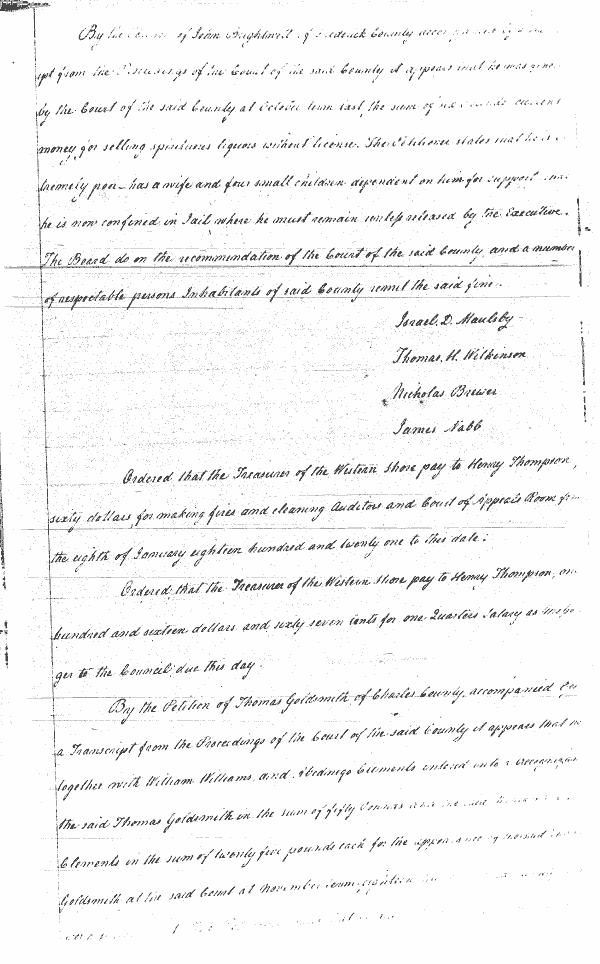 By the of John Brightwell of Frederick County accompanied by a
ipt from the Proceedings of the Court of the said County it appears that he was fine
by the Court of the said County at October term last, the sum of current
money, for selling spirituous liquors without license. The Petitioner states that he is
tremely poor – has a wife and four small children dependent on him for support
he is now confined in Jail where he must remain unless released by the Executive.
The Board do on the recommendation of the Court of the said County, and a number
of respectable persons Inhabitants of said County remit the said fine.
Israel. D. Maulsby
Thomas. H. Wilkinson
Nicholas Brewer
James Nabb
Ordered that the Treasurer of the Western Shore pay to Henry Thompson,
sixty dollars, for making fires and cleaning Auditors and Court of Appeals Room
the eighth of January eighteen hundred and twenty one to this date.
Ordered, that the Treasurer of the Western Shore pay to Henry Thompson, on
hundred and sixteen dollars and sixty seven cents for one Quarters Salary as
ger to the Council, due this day.
By the Petition of Thomas Goldsmith of Charles County, accompanied
a Transcript from the Proceedings of the Court of the said County it appears that
together with William Williams, and Abednego Clements entered into a recognizan
the said Thomas Goldsmith in the sum of fifty Pounds and the said
Clements in the sum of twenty five pounds each for the appearance of
Goldsmith at the said Court at November term, eighteen